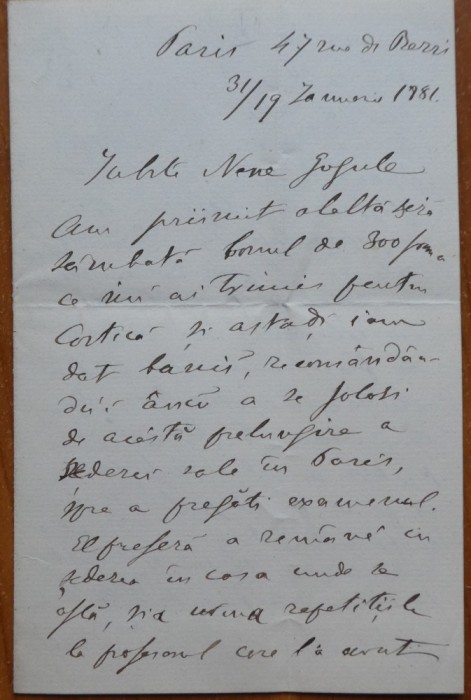 Paris 47 rue de Berri
31/19 Januariu 1881.
Iubite Nene Gogule
Am priimit alaltă seră
sâmbătă bonul de 300 franci
ce mi ai trimis pentru
Costică și astaḑi iam
dat banii, recomândân-
du i âncă a se folosi
de acéstă prelungire a
șederei sale în Paris,
spre a pregăti examenul.
El preferă a remâné cu
șederea în casa unde se
află, și a urma repetițiile
la profesorul care l'a avut